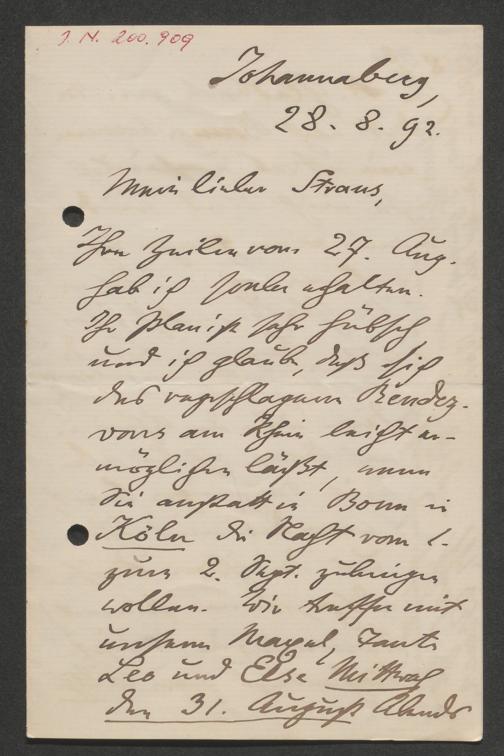 J. N. 200.909
Johannaberg,
28. 8. 92.
Mein lieber Straus,
Ihre Zeilen vom 27. Aug.
hab ich soeben erhalten.
Ihr Plan ist sehr hübsch,
und ich glaube, daß sich
das vorgeschlagene Rendez-
vous am Rhein leicht er-
möglichen läßt, wenn
Sie anstatt in Bonn in
Köln die Nacht vom 1.
zum 2. Sept. zubringen
wollen. Wir treffen mit
unserem Maxel, Tante
Leo und Else Mittwoch
den 31. August Abends